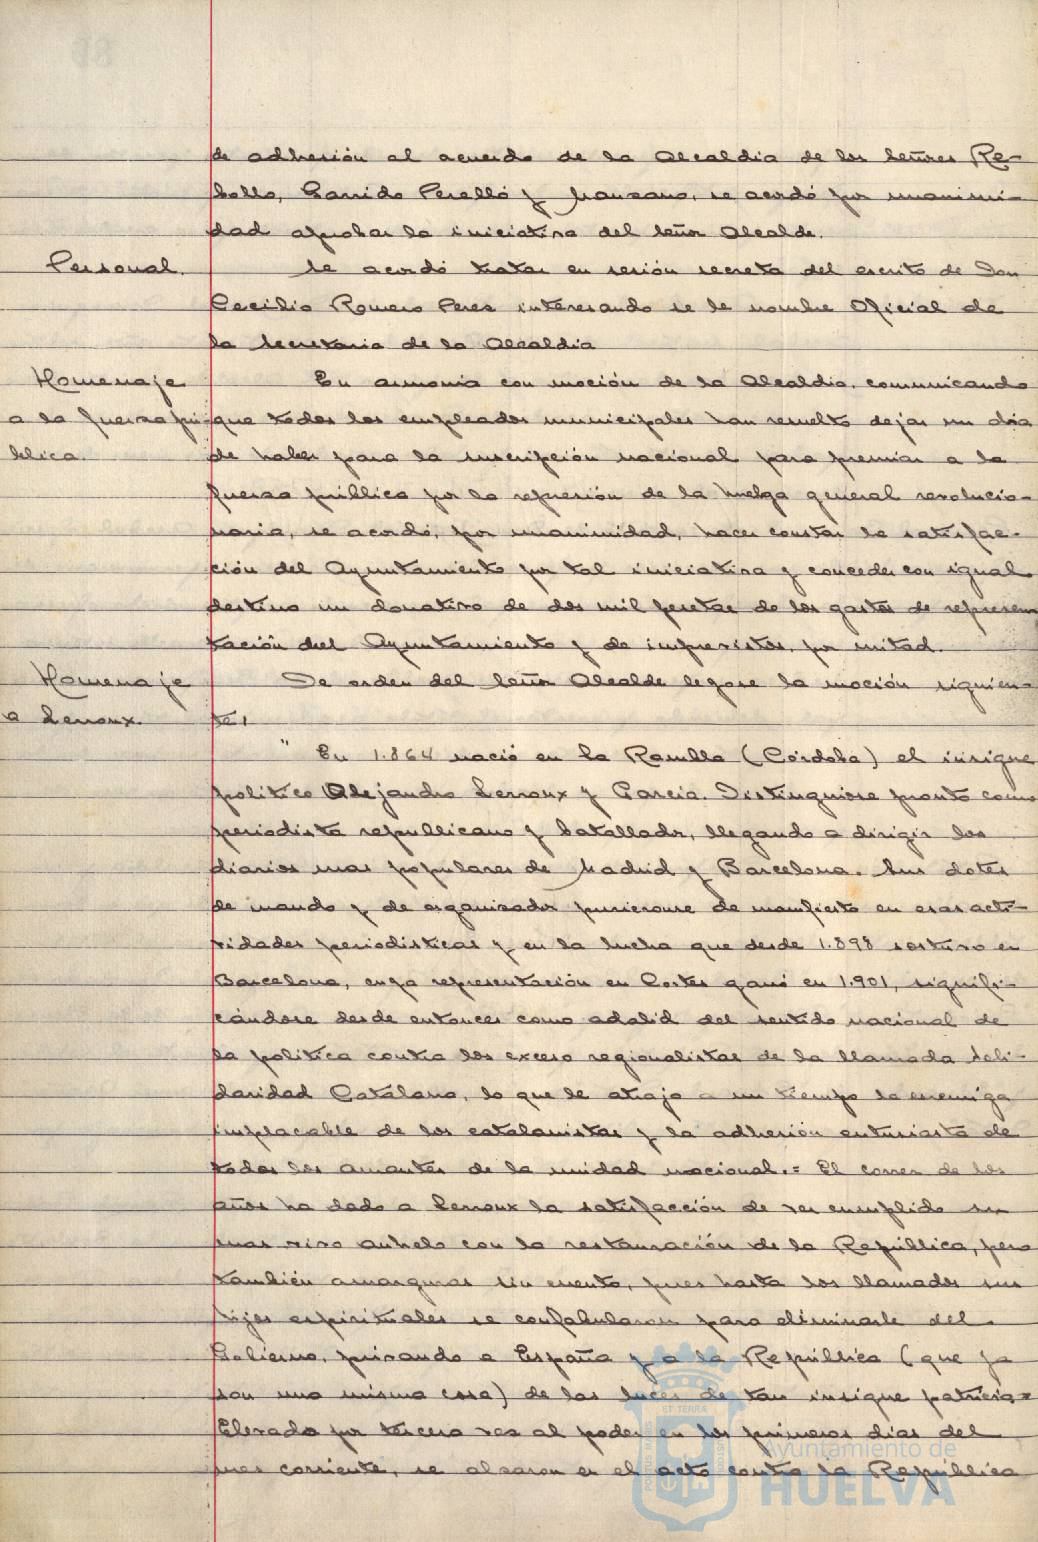 de adhesión al acuerdo de la Alcaldia de los Señores Re-
bollo, Garrido Perelló y Manzano, se acordó por unanimi-
dad aprobar la iniciativa del Señor Alcalde.
Personal.
Se acordó tratar en sesión secreta del escrito de Don
Cecilio Romero Perez interesando se le nombre Oficial de
la Secretaria de la Alcaldia
Homenaje
a la fuerza pú-
blica.
En armonia con moción de la Alcaldia, comunicando
que todos los empleados municipales han resuelto dejar un dia
de haber para la suscripción nacional para premiar a la
fuerza pública por la represión de la huelga general revolucio-
naria, se acordó, por unanimidad, hacer constar la satisfac-
ción del Ayuntamiento por tal iniciativa y conceder con igual
destino un donativo de dos mil pesetas de los gastos de represen
tación del Ayuntamiento y de imprevistos, por mitad.
Homenaje
a Lerroux.
De orden del Señor Alcalde leyose la moción siguien-
te:
" En 1.864 nació en La Rambla (Córdoba) el insigne
politico Alejandro Lerroux y Garcia. Distinguiose pronto como
periodista republicano y batallador, llegando a dirigir los
diarios mas populares de Madrid y Barcelona. Sus dotes
de mando y de organizador pusieronse de manifiesto en esas acti-
vidades periodisticas y en la lucha que desde 1.898 sostuvo en
Barcelona, cuya representación en Cortes ganó en 1.901, signifi-
cándose desde entonces como adalid del sentido nacional de
la politica contra los exceso regionalistas de la llamada Soli-
daridad Catalana, lo que le atrajo a un tiempo la enemiga
implacable de los catalanistas y la adhesión entusiasta de
todos los amantes de la unidad nacional.= El correr de los
años ha dado a Lerroux la satisfacción de ver cumplido su
mas vivo anhelo con la restauración de la República, pero
también amarguras sin cuento, pues hasta los llamados sus
hijos espirituales se confabularon para eliminarle del
Gobierno, privando a España y a la República (que ya
son una misma cosa) de las luces de tan insigne patricio=
Elevado por tercera vez al poder en los primeros dias del
mes corriente, se alzaron en el acto contra la República
Ayuntamiento de
HUELVA